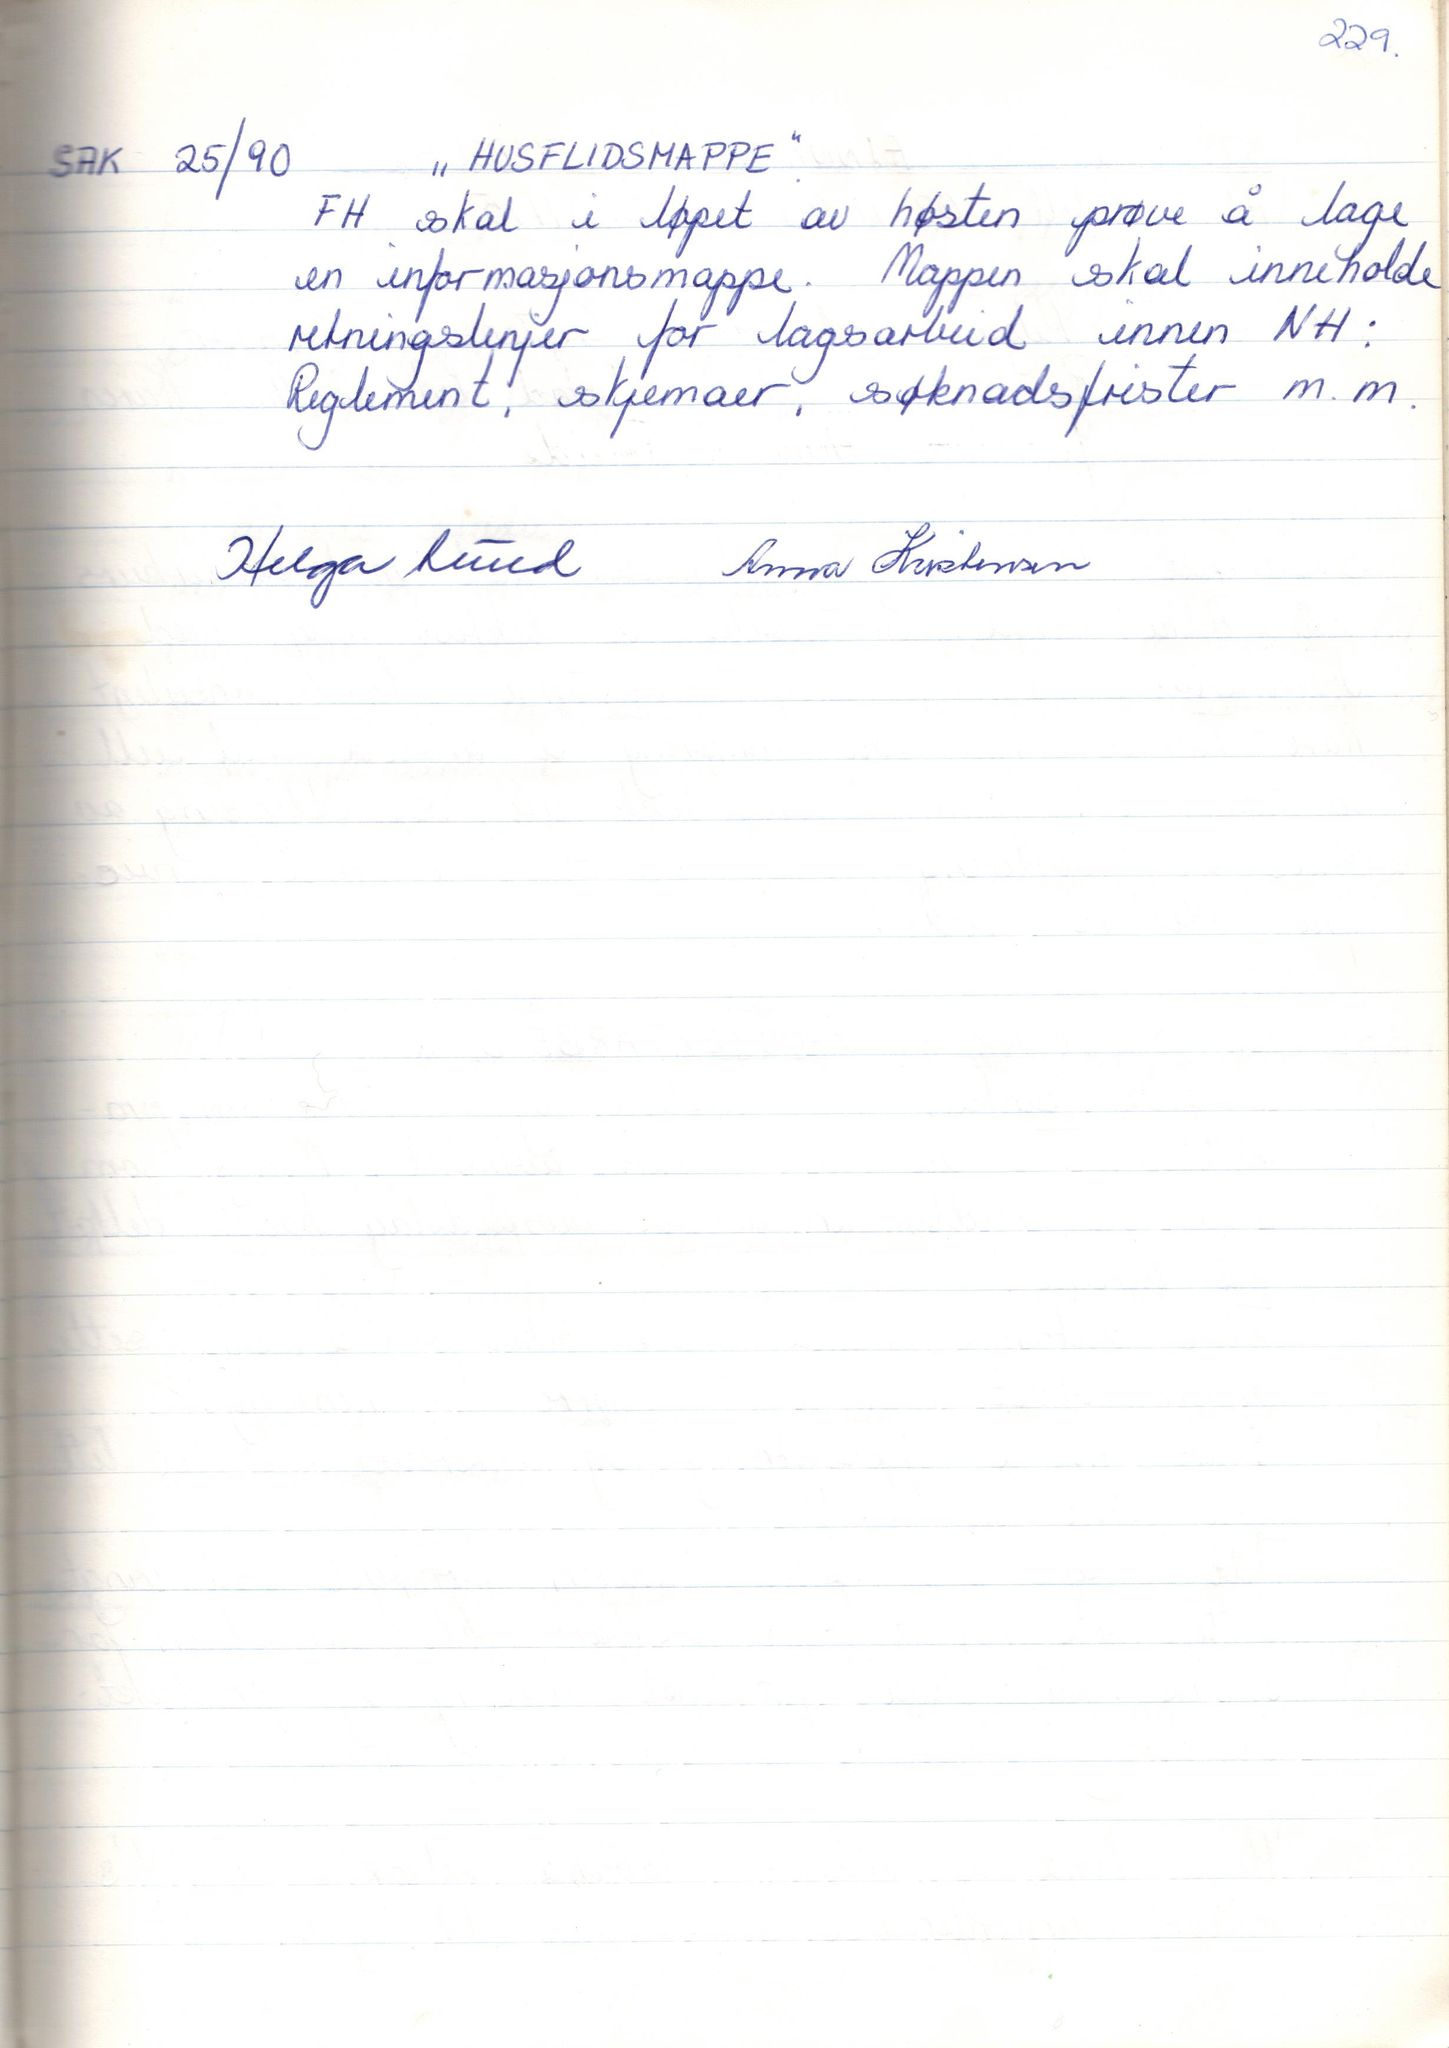 229.
SAK 25/90 „HUSFLIDSMAPPE"
FH skal i løpet av høsten prøve å lage
en informasjonsmappe. Mappen skal inneholde
retningslinjer for lagsarbeid innen NH:
Reglement, skjemaer, søknadsfrister m.m.
Helga Anna Kristensen